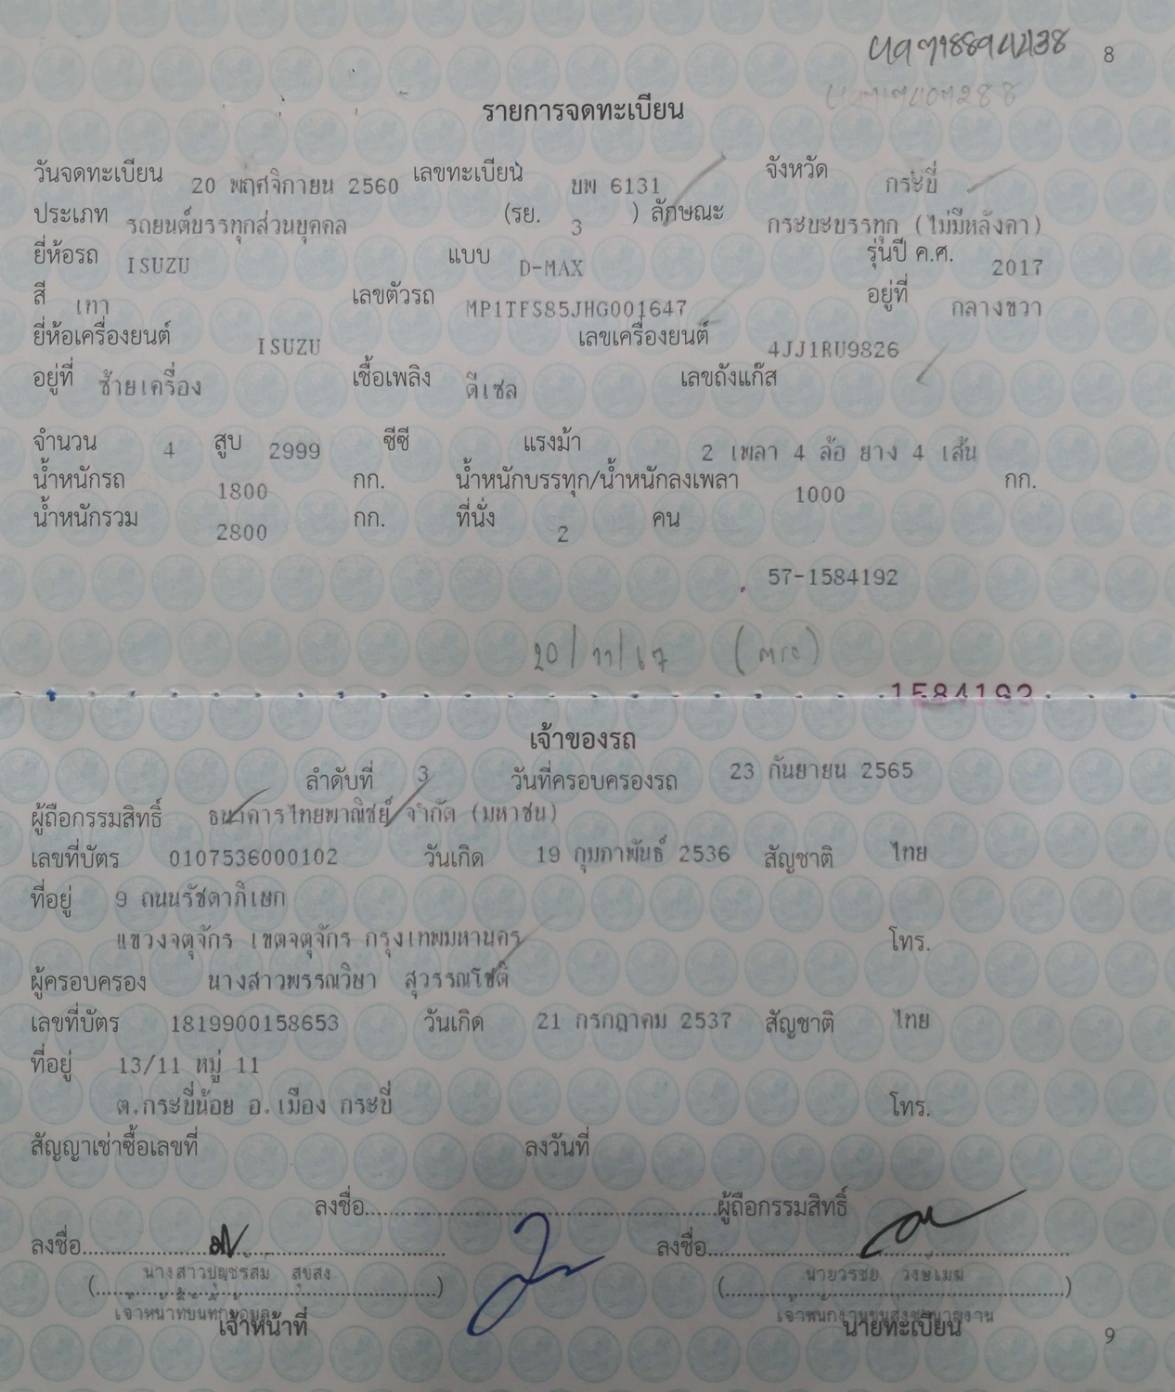 8
รายการจดทะเบียน
วันจดทะเบียน 20 พฤศจิกายน 2560 เลขทะเบียน บพ 6131 จังหวัด กระบี่
ประเภท รถยนต์บรรทุกส่วนบุคคล (รย. 3 ) ลักษณะ กระบะบรรทุก (ไม่มีหลังคา)
ยี่ห้อรถ ISUZU แบบ D-MAX รุ่นปี ค.ศ. 2017
สี เทา เลขตัวรถ MP1TFS85JHG001647 อยู่ที่ กลางขวา
ยี่ห้อเครื่องยนต์ ISUZU เลขเครื่องยนต์ 4JJ1RU9826
อยู่ที่ ซ้ายเครื่อง เชื้อเพลิง ดีเซล เลขถังแก๊ส
จำนวน 4 สูบ 2999 ซีซี แรงม้า 2 เพลา 4 ล้อ ยาง 4 เส้น
น้ำหนักรถ 1800 กก. น้ำหนักบรรทุก/น้ำหนักลงเพลา 1000 กก.
น้ำหนักรวม 2800 กก. ที่นั่ง 2 คน
57-1584192
20/11/67
1584192
เจ้าของรถ
ลำดับที่ 3 วันที่ครอบครองรถ 23 กันยายน 2565
ผู้ถือกรรมสิทธิ์ ธนาคารไทยพาณิชย์ จำกัด (มหาชน)
เลขที่บัตร 0107536000102 วันเกิด 19 กุมภาพันธ์ 2536 สัญชาติ ไทย
ที่อยู่ 9 ถนนรัชดาภิเษก
แขวงจตุจักร เขตจตุจักร กรุงเทพมหานคร โทร.
ผู้ครอบครอง นางสาวพรรณวิษา สุวรรณโชติ
เลขที่บัตร 1819900158653 วันเกิด 21 กรกฎาคม 2537 สัญชาติ ไทย
ที่อยู่ 13/11 หมู่ 11
ต.กระบี่น้อย อ.เมือง กระบี่ โทร.
สัญญาเช่าซื้อเลขที่ ลงวันที่
ลงชื่อ ผู้ถือกรรมสิทธิ์
ลงชื่อ ลงชื่อ
เจ้าหน้าที่ นายทะเบียน
9